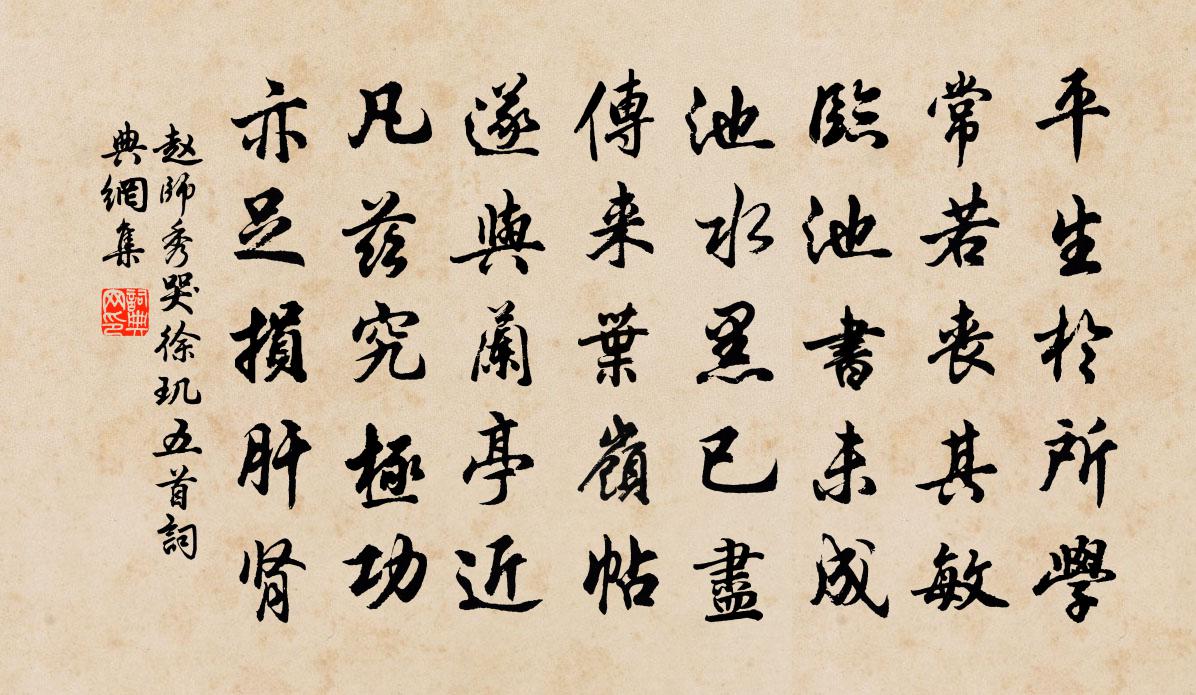 平生於所學
常若喪其敏
臨池書未成
池水黑已盡
傳来葉嶺帖
遂與蘭亭近
凡茲究極功
亦足損肝肾
赵師秀哭徐玑五首詞
典網集
詞典
网印